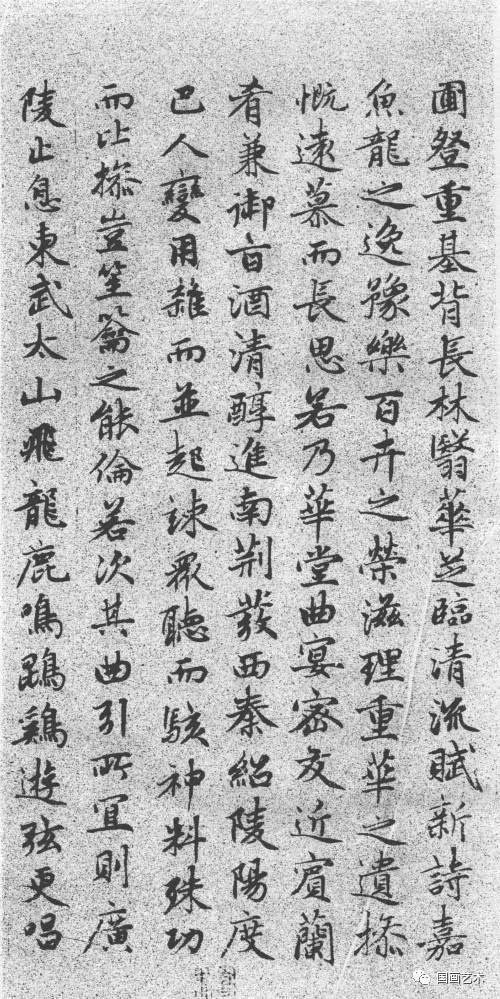 圃登重基背長林翳華芝臨清流賦新詩嘉
魚龍之逸豫樂百卉之榮滋理重華之遺操
慨遠慕而長思若乃華堂曲宴密友近賓蘭
肴兼御旨酒清醇進南荊發西秦紹陵陽度
巴人變用雜而並起竦衆聽而駭神料殊功
而比操豈笙籥之能倫若次其曲引所宜則廣
陵止息東武太山飛龍鹿鳴鵾鷄遊弦更唱
国画艺术